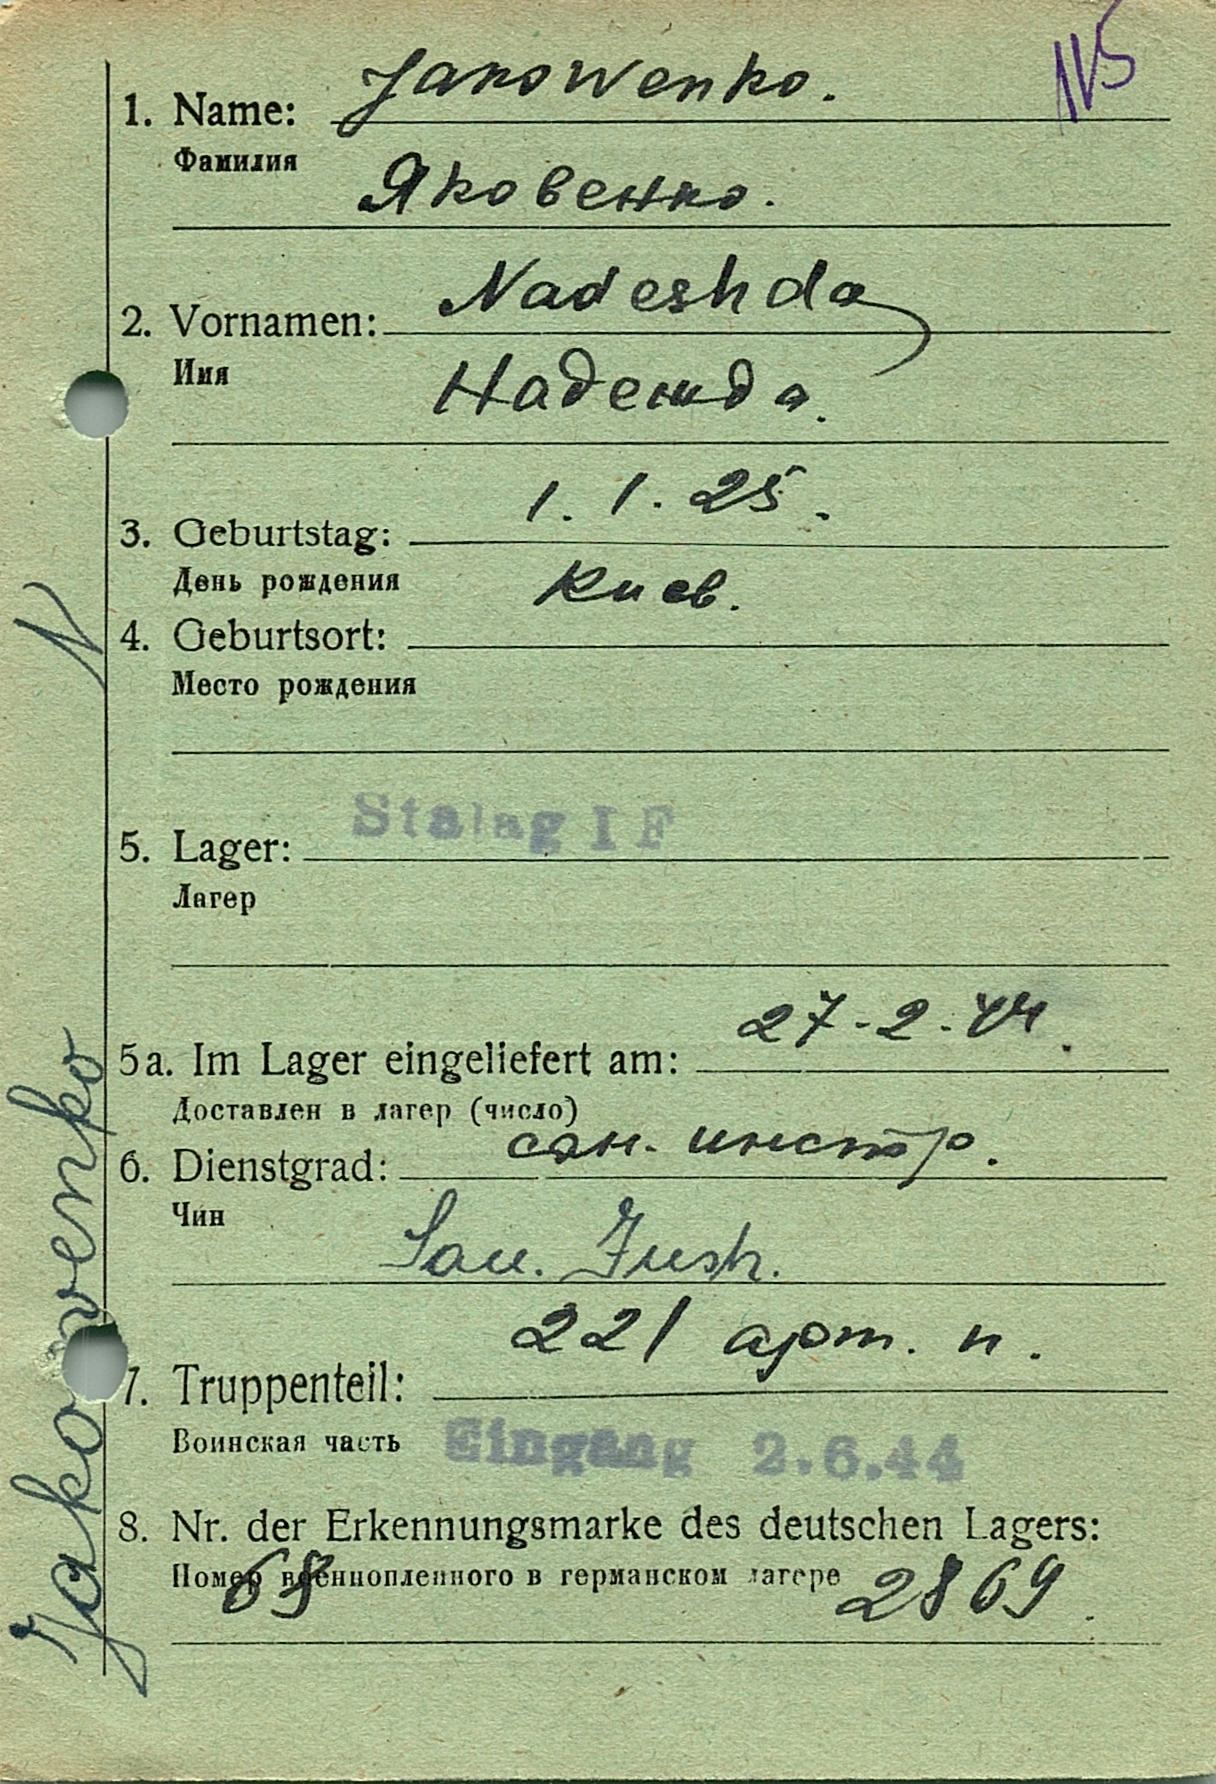 115
1. Name: Jakowenko.
Фамилия
Яковенко.
2. Vornamen: Nadeshda
Имя
Надежда.
3. Geburtstag: 1.1.25.
День рождения
Киев.
4. Geburtsort:
Место рождения
5. Lager: Stalag I F
Лагер
5a. Im Lager eingeliefert am: 27-2.44.
Доставлен в лагер (число)
6. Dienstgrad: сан. инстр.
Чин
San. Insh.
221 арт. п.
7. Truppenteil:
Воинская часть Eingang 2.6.44
8. Nr. der Erkennungsmarke des deutschen Lagers:
Номер военнопленного в германском лагере
68 2869.
Jakowenko N